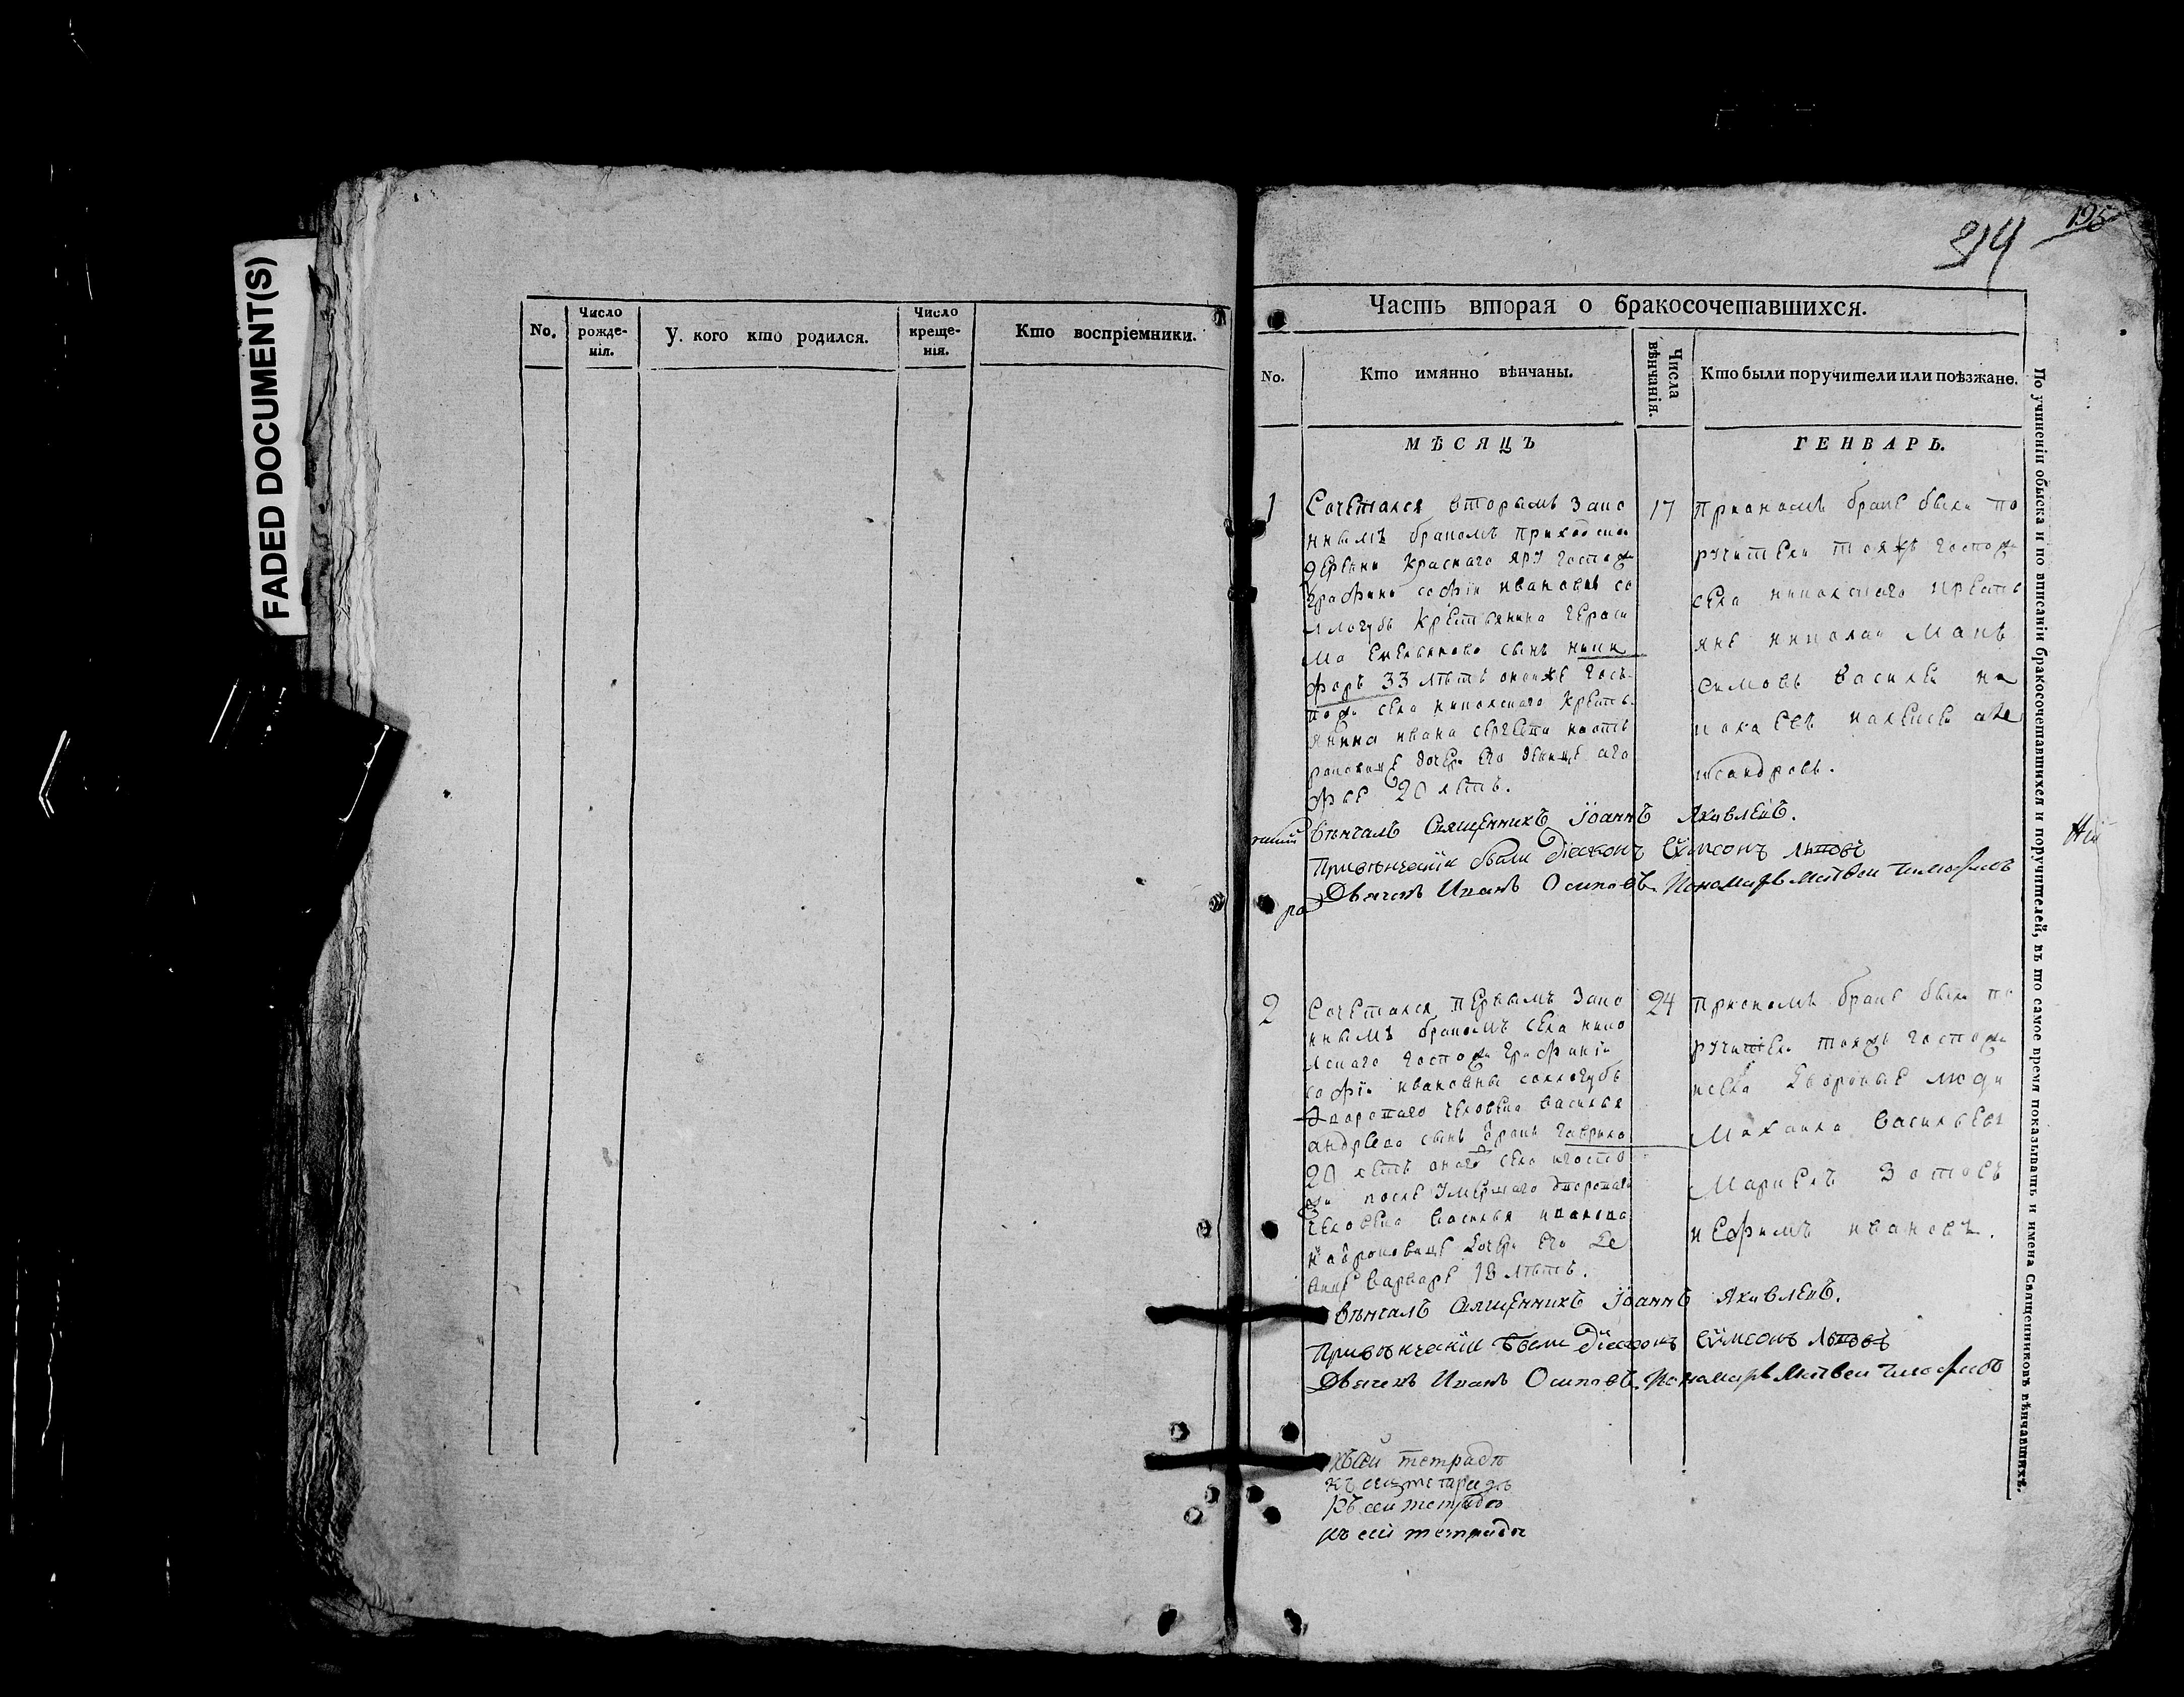 FADED DOCUMENT(S)
No.
Число рожде-нія.
У кого кто родился.
Число креще-нія.
Кто воспріемники.
195
Часть вторая о бракосочетавшихся.
No.
Кто имянно вѣнчаны.
Числа вѣнчанія.
Кто были поручители или поѣзжане.
МѢСЯЦЪ
ГЕНВАРЬ.
1
Сочетался вторымъ зако
ннымъ бракомъ приходской
деревни Краснаго яру госпож
графини софіи ивановны со
ллогубъ крестьянина гераси
ма емельянова сынъ ники
форъ 33 лѣтъ оной же гось
пожи села никольскаго кресть
янина ивана сергеева
дочерь его девице ага
фье 20 летъ.
17
При ономъ браке были по
ручители тояжъ госпож
села никольскаго кресть
яне николай
симовъ василей ни
колаевъ алексей але
ксандровъ.
Вѣнчалъ Священникъ Іоаннъ Яковлевъ.
При вѣнчаніи были діаконъ Сѵмеонъ Львовъ
Дьячекъ Иванъ Осиповъ. Пономарь Матвей Тимофеевъ
2
Сочетался первымъ зако
ннымъ бракомъ села нико
льскаго госпожи графини
софіи ивановны соллогубъ
двороваго человека василья
андреева сынъ гаврила
20 летъ оного села и госпо
жи после умершаго двороваго
человека василья иванова
дочерь его де
вице варваре 18 лѣтъ.
24
При ономъ браке были по
ручители тояжъ госпожи
и села дворовые люди
Михаила Васильевъ
Маркелъ Зотовъ
и Ефимъ ивановъ.
Вѣнчалъ Священникъ Іоаннъ Яковлевъ.
При вѣнчаніи были діаконъ Сѵмеонъ Львовъ
Дьячекъ Иванъ Осиповъ. Пономарь Матвей Тимофеевъ
къ сей тетради
къ сей тетрадѣ
къ сей тетрадѣ
къ сей тетради
По учиненіи обыска и по вписаніи бракосочетавшихся и поручителей, въ то самое время показывать и имена Священниковъ вѣнчавшихъ.